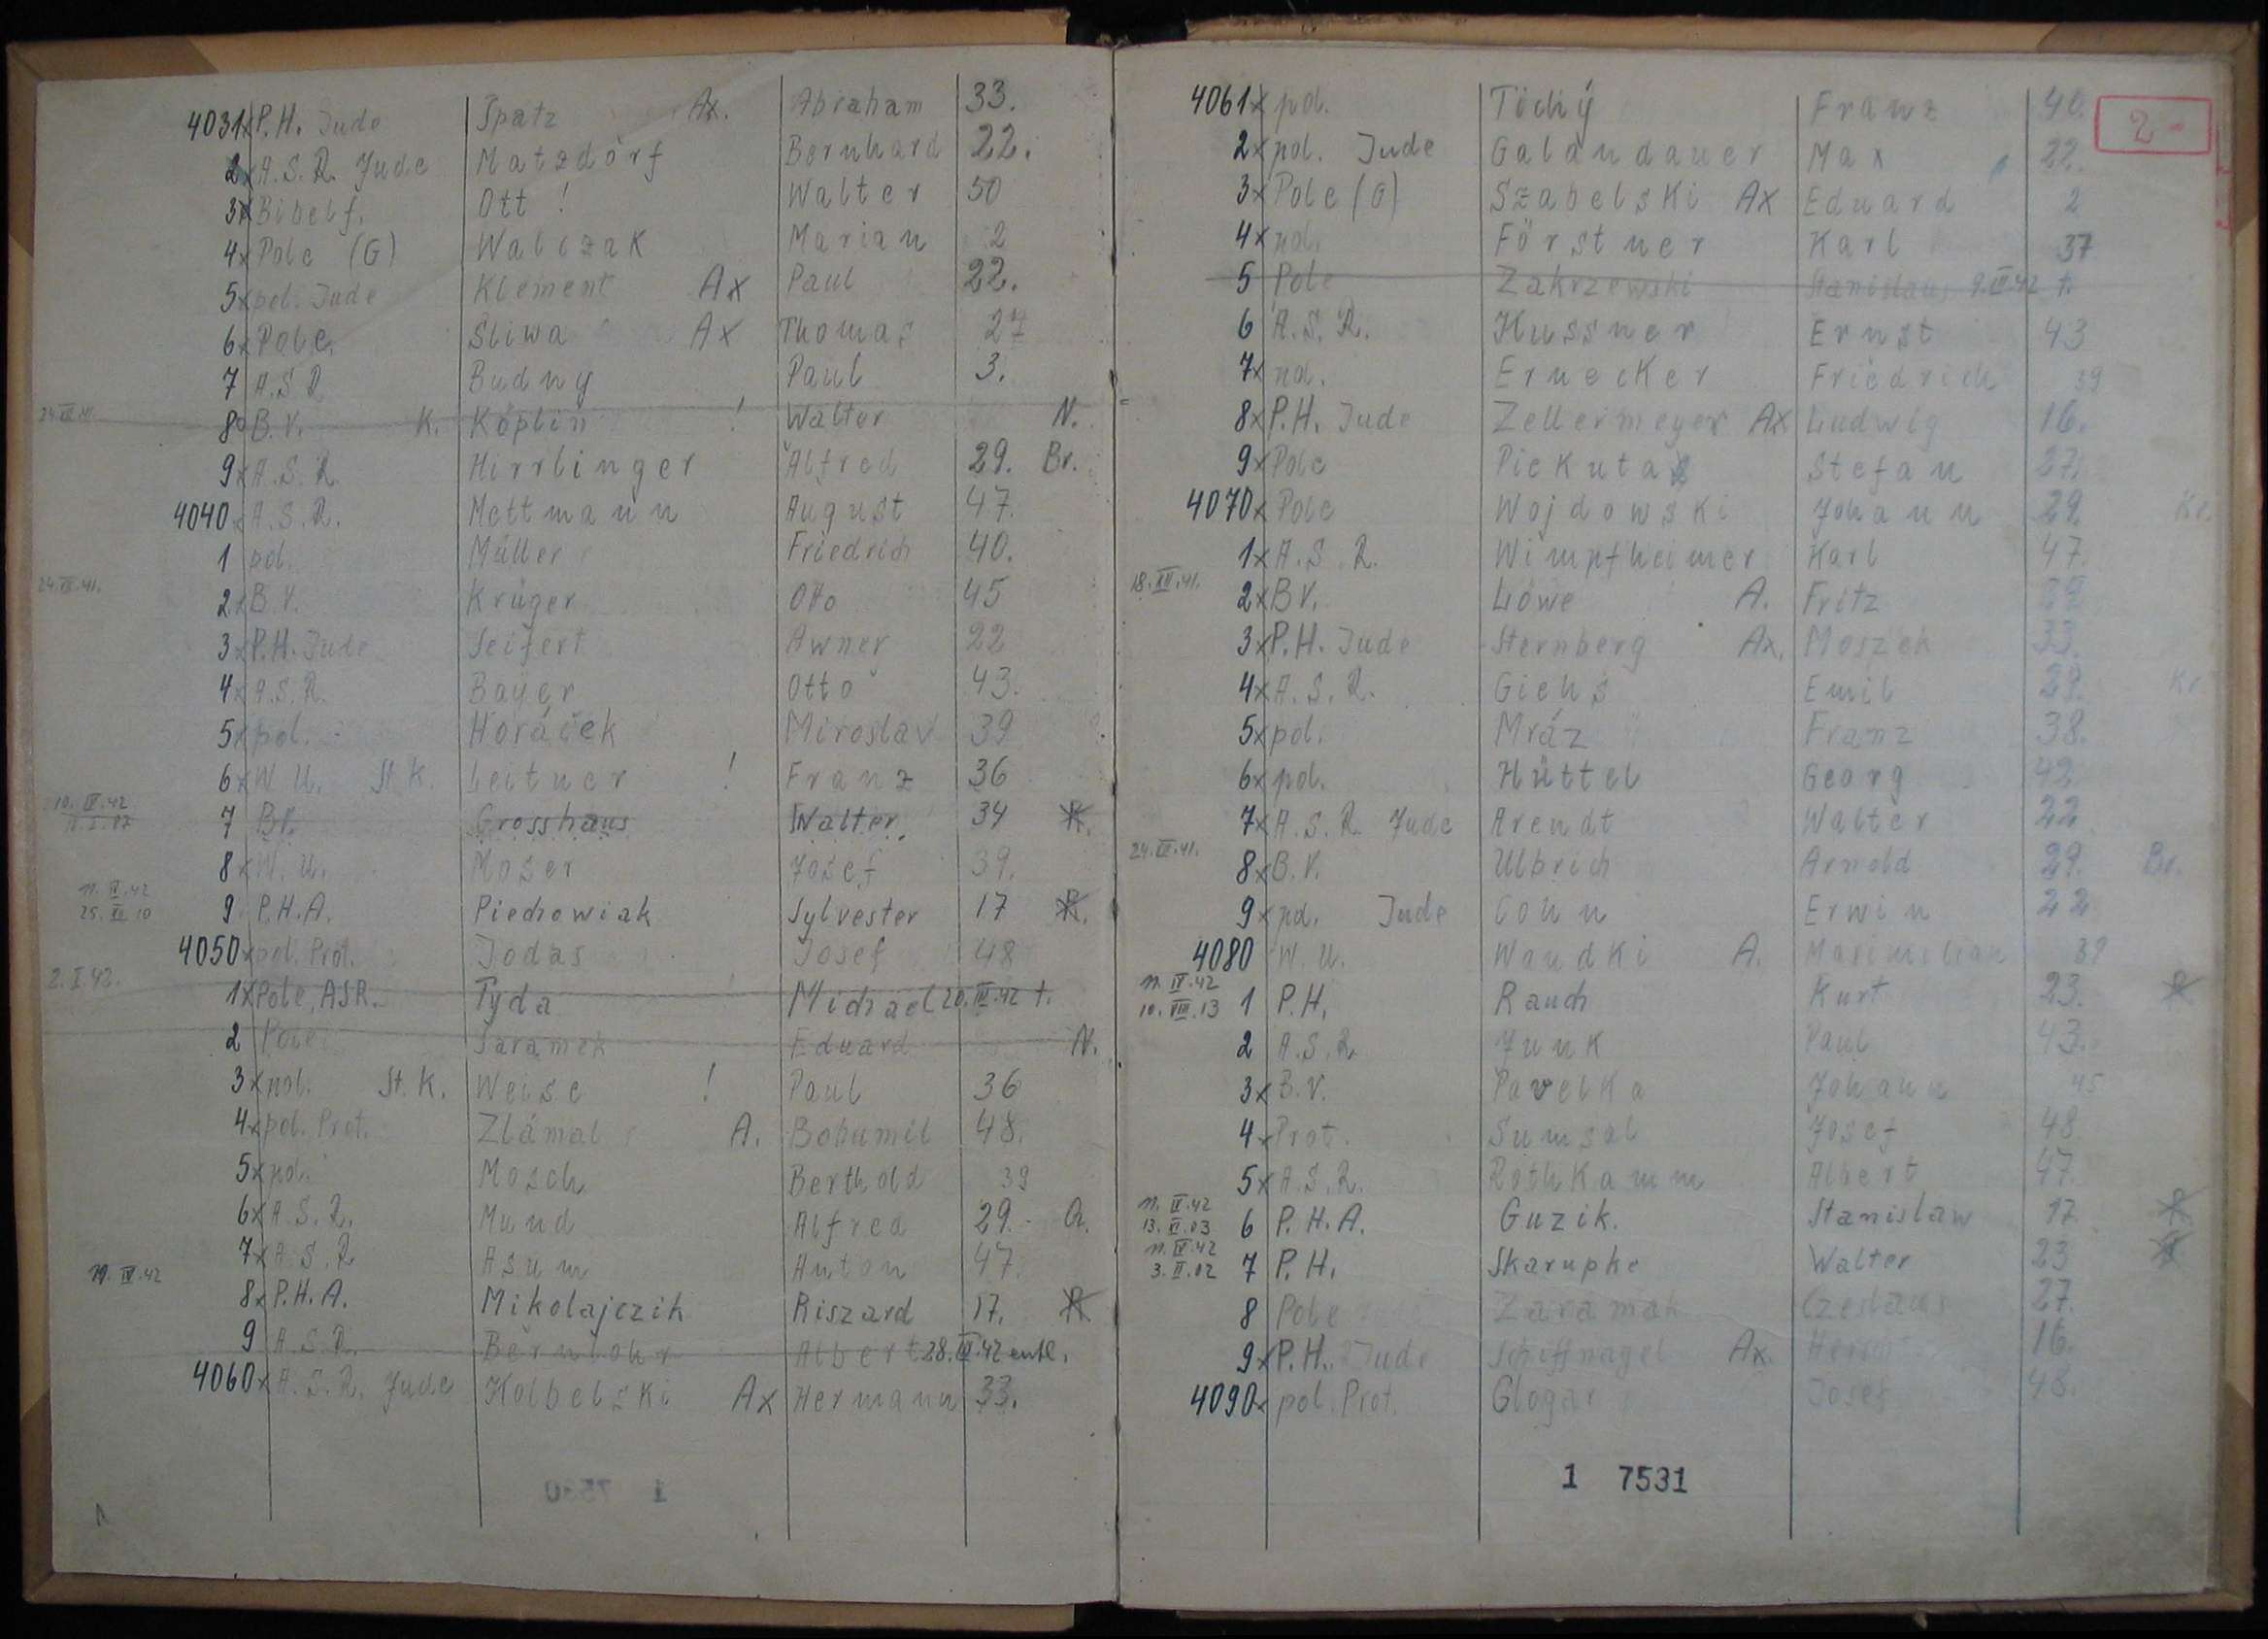 4031x P.H. Jude Spatz Ax. Abraham 33.
2x A.S.R. Jude Matzdorf Bernhard 22.
3x Bibelf. Ott ! Walter 50
4x Pole (G) Walczak Marian 2
5x pol. Jude Klement Ax Paul 22.
6x Pole. Sliwa Ax Thomas 27
7 A.S.R. Budny Paul 3.
8 B.V. K. Köplin ! Walter N.
9x A.S.R. Hirrlinger Alfred 29. Br.
4040 A.S.R. Mettmann August 47.
1 pol. Müller Friedrich 40.
24.III.41. 2x B.V. Krüger Otto 45
3x P.H. Jude Seifert Awner 22
4x A.S.R. Bayer Otto 43.
5x pol. Horáček Miroslav 39
6x W.U. St.K. Leitner ! Franz 36
10.IV.42 7 BV. Grosshaus Walter. 34 R.
8x W.U. Moser Josef 39.
11.IV.42 9 P.H.A. Piechowiak Sylvester 17 R.
25.XII.10
4050x pol. Prot. Jodas Josef 48
2.I.42. 1x Pole, ASR. Tyda Michael 20.III.42 †.
2 Pole Saramek Eduard N.
3x pol. St.K. Weise ! Paul 36
4x pol. Prot. Zlámal A. Bohumil 48.
5x pol. Mosch Berthold 39
6x A.S.R. Mund Alfred 29.
7x A.S.R. Asum Anton 47.
11.IV.42 8x P.H.A. Mikolajczik Riszard 17. R
9 A.S.R. Bernlohr Albert 28.III.42 entl.
4060x A.S.R. Jude Kolbelski Ax Hermann 33.
1 7530
2-
4061x pol. Tichý Franz 40.
2x pol. Jude Galandauer Max 22.
3x Pole (G) Szabelski Ax Eduard 2
4x pol. Förstner Karl 37
5 Pole Zakrzewski Stanislaus 9.III.42 †.
6 A.S.R. Kussner Ernst 43
7x pol. Ernecker Friedrich 39
8x P.H. Jude Zellermeyer Ax Ludwig 16.
9x Pole Piekuta Stefan 27.
4070x Pole Wojdowski Johann 29. Kr.
1x A.S.R. Wimpfheimer Karl 47.
18.XII.41. 2x BV. Löwe A. Fritz 29
3x P.H. Jude Sternberg Ax. Moszek 33.
4x A.S.R. Giehs Emil 29. Kr.
5x pol. Mráz Franz 38.
6x pol. Hüttel Georg 42
7x A.S.R. Jude Arendt Walter 22
8x B.V. Ulbrich Arnold 29. Br.
9x pol. Jude Cohn Erwin 22
4080 W.U. Wandki A. Maximilian 39
11.IV.42 1 P.H. Rauch Kurt 23. R
10.VIII.13
2 A.S.R. Junk Paul 43.
3x B.V. Pavelka Johann 45
4x Prot. Sumsal Josef 48
5x A.S.R. Rothkamm Albert 47.
11.IV.42 6 P.H.A. Guzik. Stanislaw 17. R
13.XI.03
11.IV.42 7 P.H. Skarupke Walter 23 R
3.II.02
8 Pole Zaramak Czeslaus 27.
9x P.H. Jude Schiffnagel Ax. 16.
4090x pol. Prot. Glogar Josef 48.
1 7531